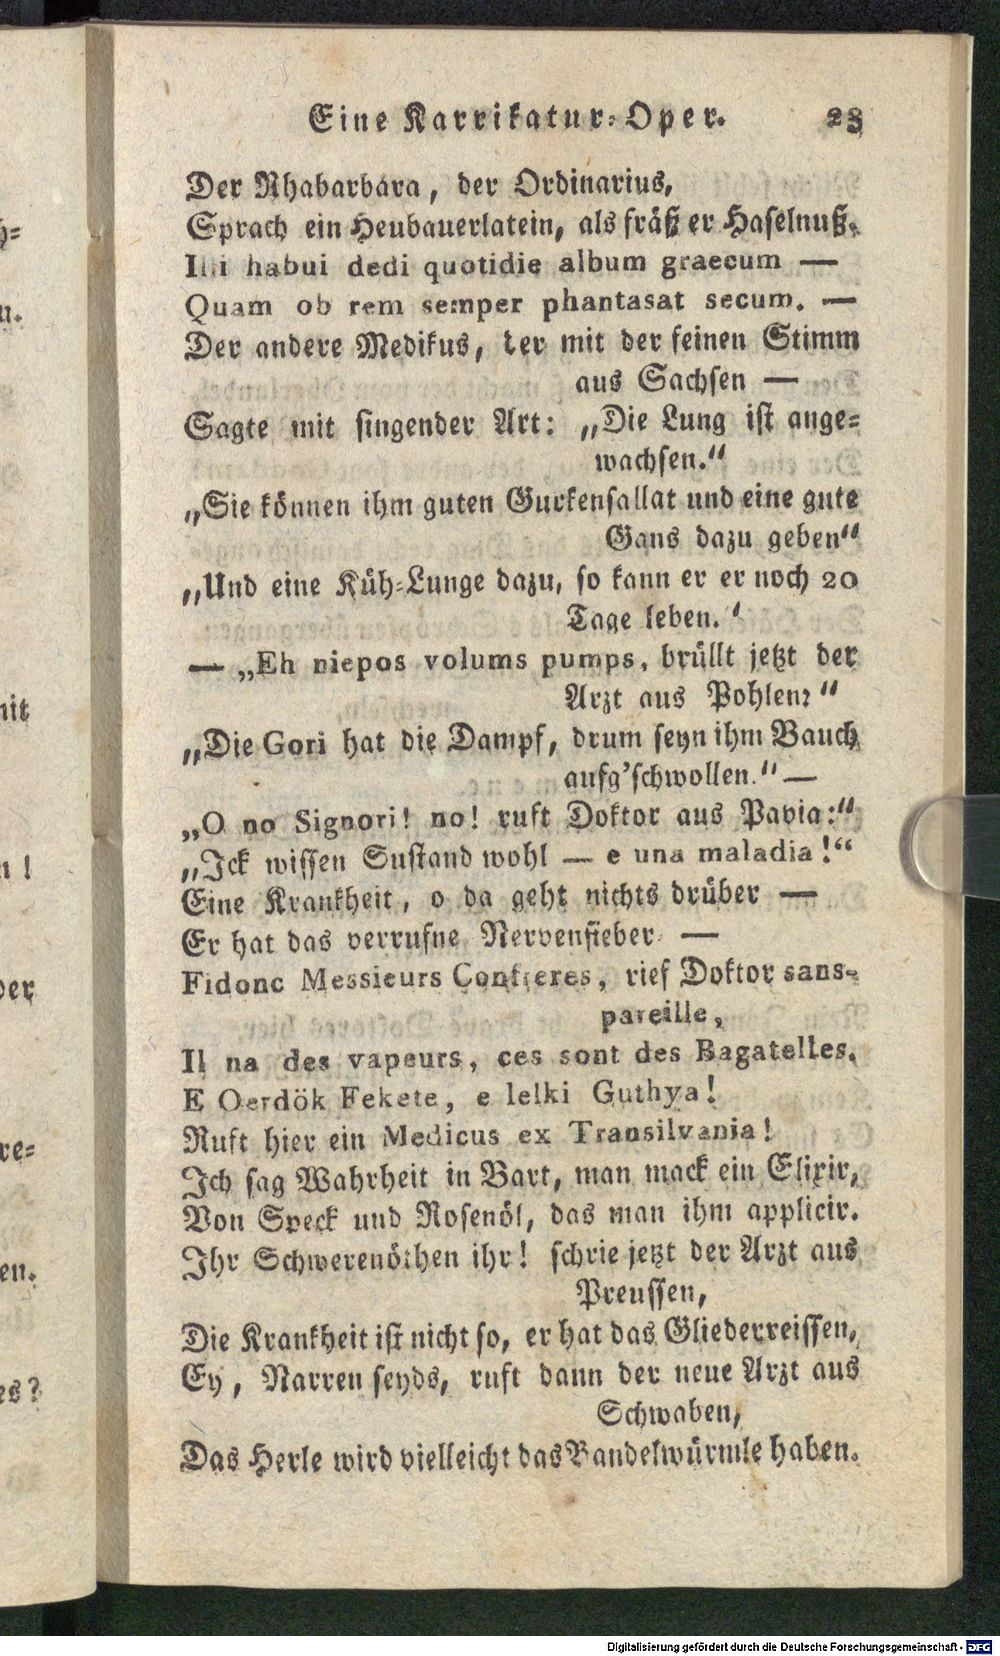 Eine Karrikatur-Oper. 23
Der Rhabarbara, der Ordinarius,
Sprach ein Heubauerlatein, als fräß er Haselnuß.
Illi habui dedi quotidie album graecum —
Quam ob rem semper phantasat secum. —
Der andere Medikus, der mit der feinen Stimm
aus Sachsen —
Sagte mit singender Art: „Die Lung ist ange-
wachsen.“
„Sie können ihm guten Gurkensallat und eine gute
Gans dazu geben“
„Und eine Küh-Lunge dazu, so kann er er noch 20
Tage leben.“
— „Eh niepos volums pumps, brüllt jetzt der
Arzt aus Pohlen: “
„Die Gori hat die Dampf, drum seyn ihm Bauch
aufg'schwollen.“ —
„O no Signori! no! ruft Doktor aus Pavia:“
„Ick wissen Sustand wohl — e una maladia!“
Eine Krankheit, o da geht nichts drüber —
Er hat das verrufne Nervenfieber —
Fidonc Messieurs Confreres, rief Doktor sans-
pareille,
Il na des vapeurs, ces sont des Bagatelles.
E Oerdök Fekete, e lelki Guthya!
Ruft hier ein Medicus ex Transilvania!
Ich sag Wahrheit in Bart, man mack ein Elixir,
Von Speck und Rosenöl, das man ihm applicir.
Ihr Schwerenöthen ihr! schrie jetzt der Arzt aus
Preussen,
Die Krankheit ist nicht so, er hat das Gliederreissen,
Ey, Narren seyds, ruft dann der neue Arzt aus
Schwaben,
Das Herle wird vielleicht das Bandelwürmle haben.
h-
n.
mit
n!
der
re-
en.
es?
Digitalisierung gefördert durch die Deutsche Forschungsgemeinschaft - DFG